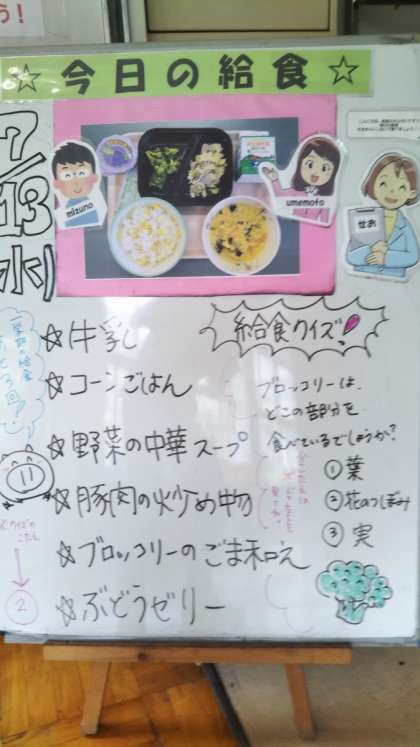 ☆今日の給食☆
7/13
(水)
mizuno
umemoto
せお
☆牛乳
☆コーンごはん
☆野菜の中華スープ
☆豚肉の炒め物
☆ブロッコリーのごま和え
☆ぶどうゼリー
給食クイズ!
ブロッコリーは、
どこの部分を
食べているでしょうか?
①葉
②花のつぼみ
③実
クイズの
こたえ
②